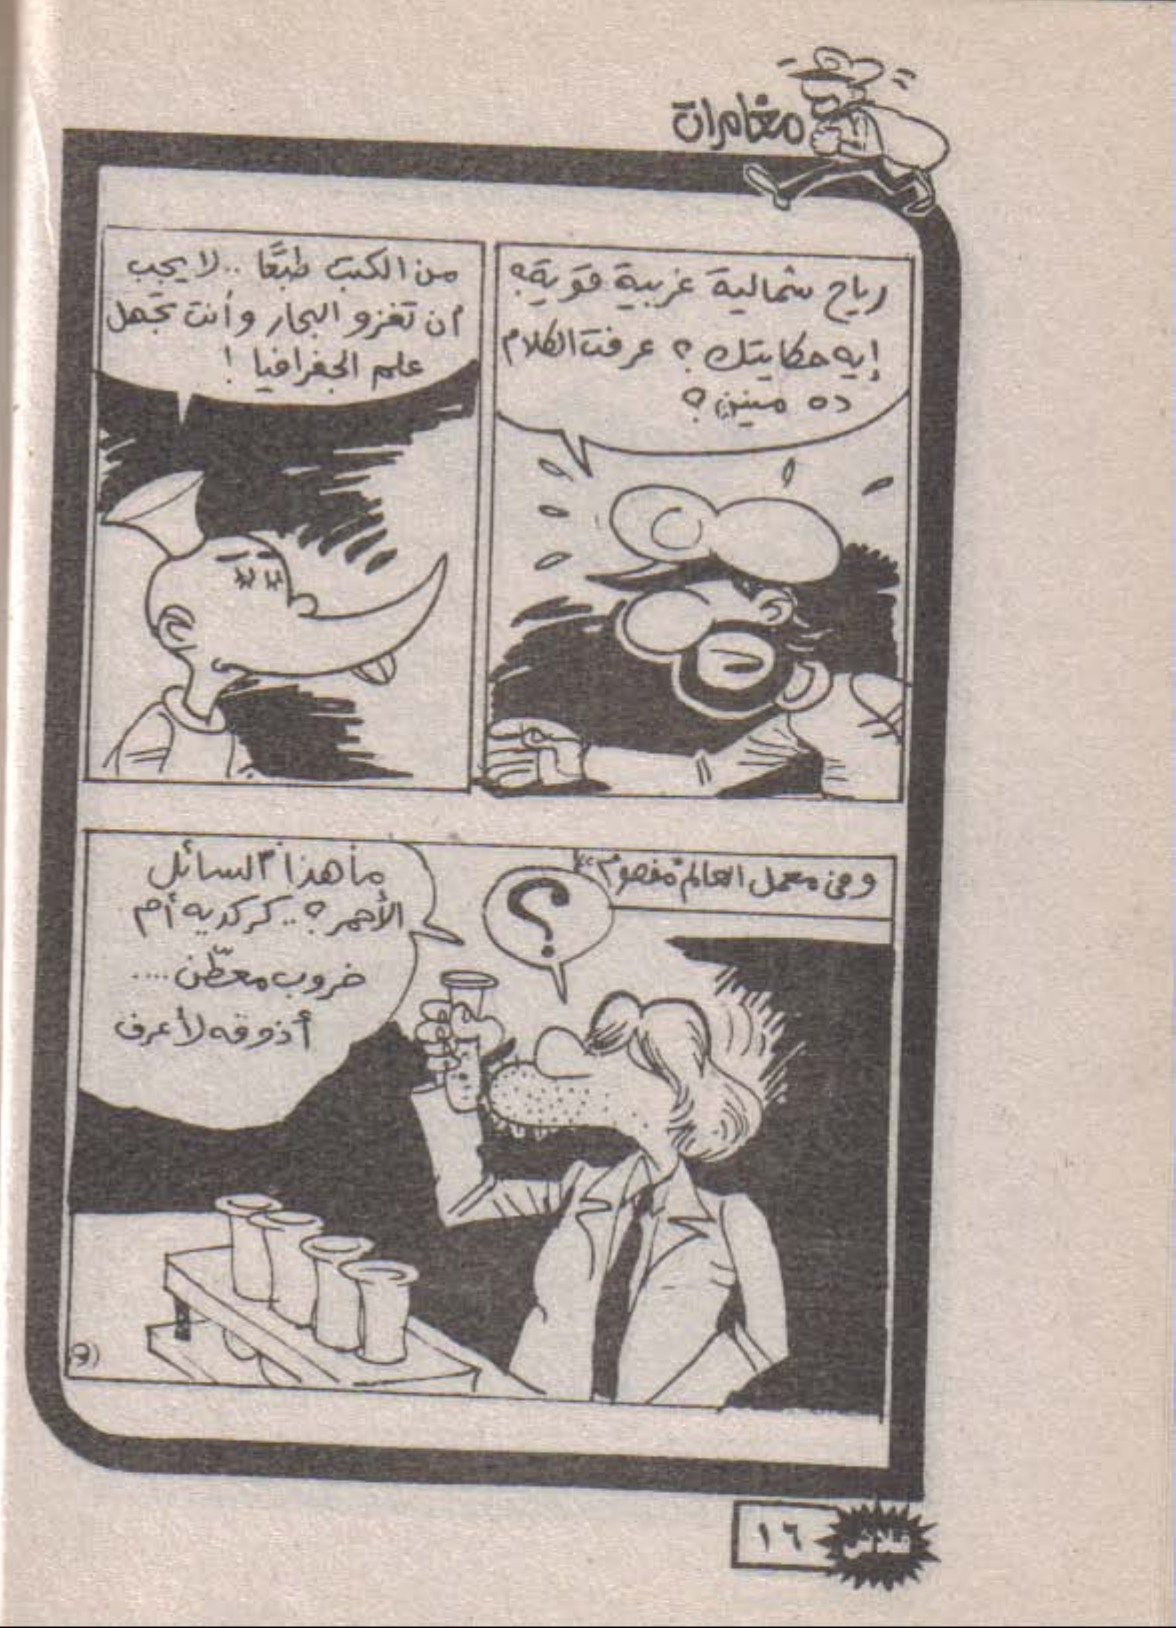 مغامرات
رياح شمالية غربية قوية؟
إيه حكايتك؟ عرفت الكلام
ده منين؟
من الكتب طبعًا .. لا يجب
أن تغزو البحار وأنت تجهل
علم الجغرافيا !
وفى معمل العالم "مفصوم"
؟
ما هذا السائل
الأحمر؟ .. كركديه أم
خروب معطّن ....
أذوقه لأعرف
(٩)
فلاش
١٦